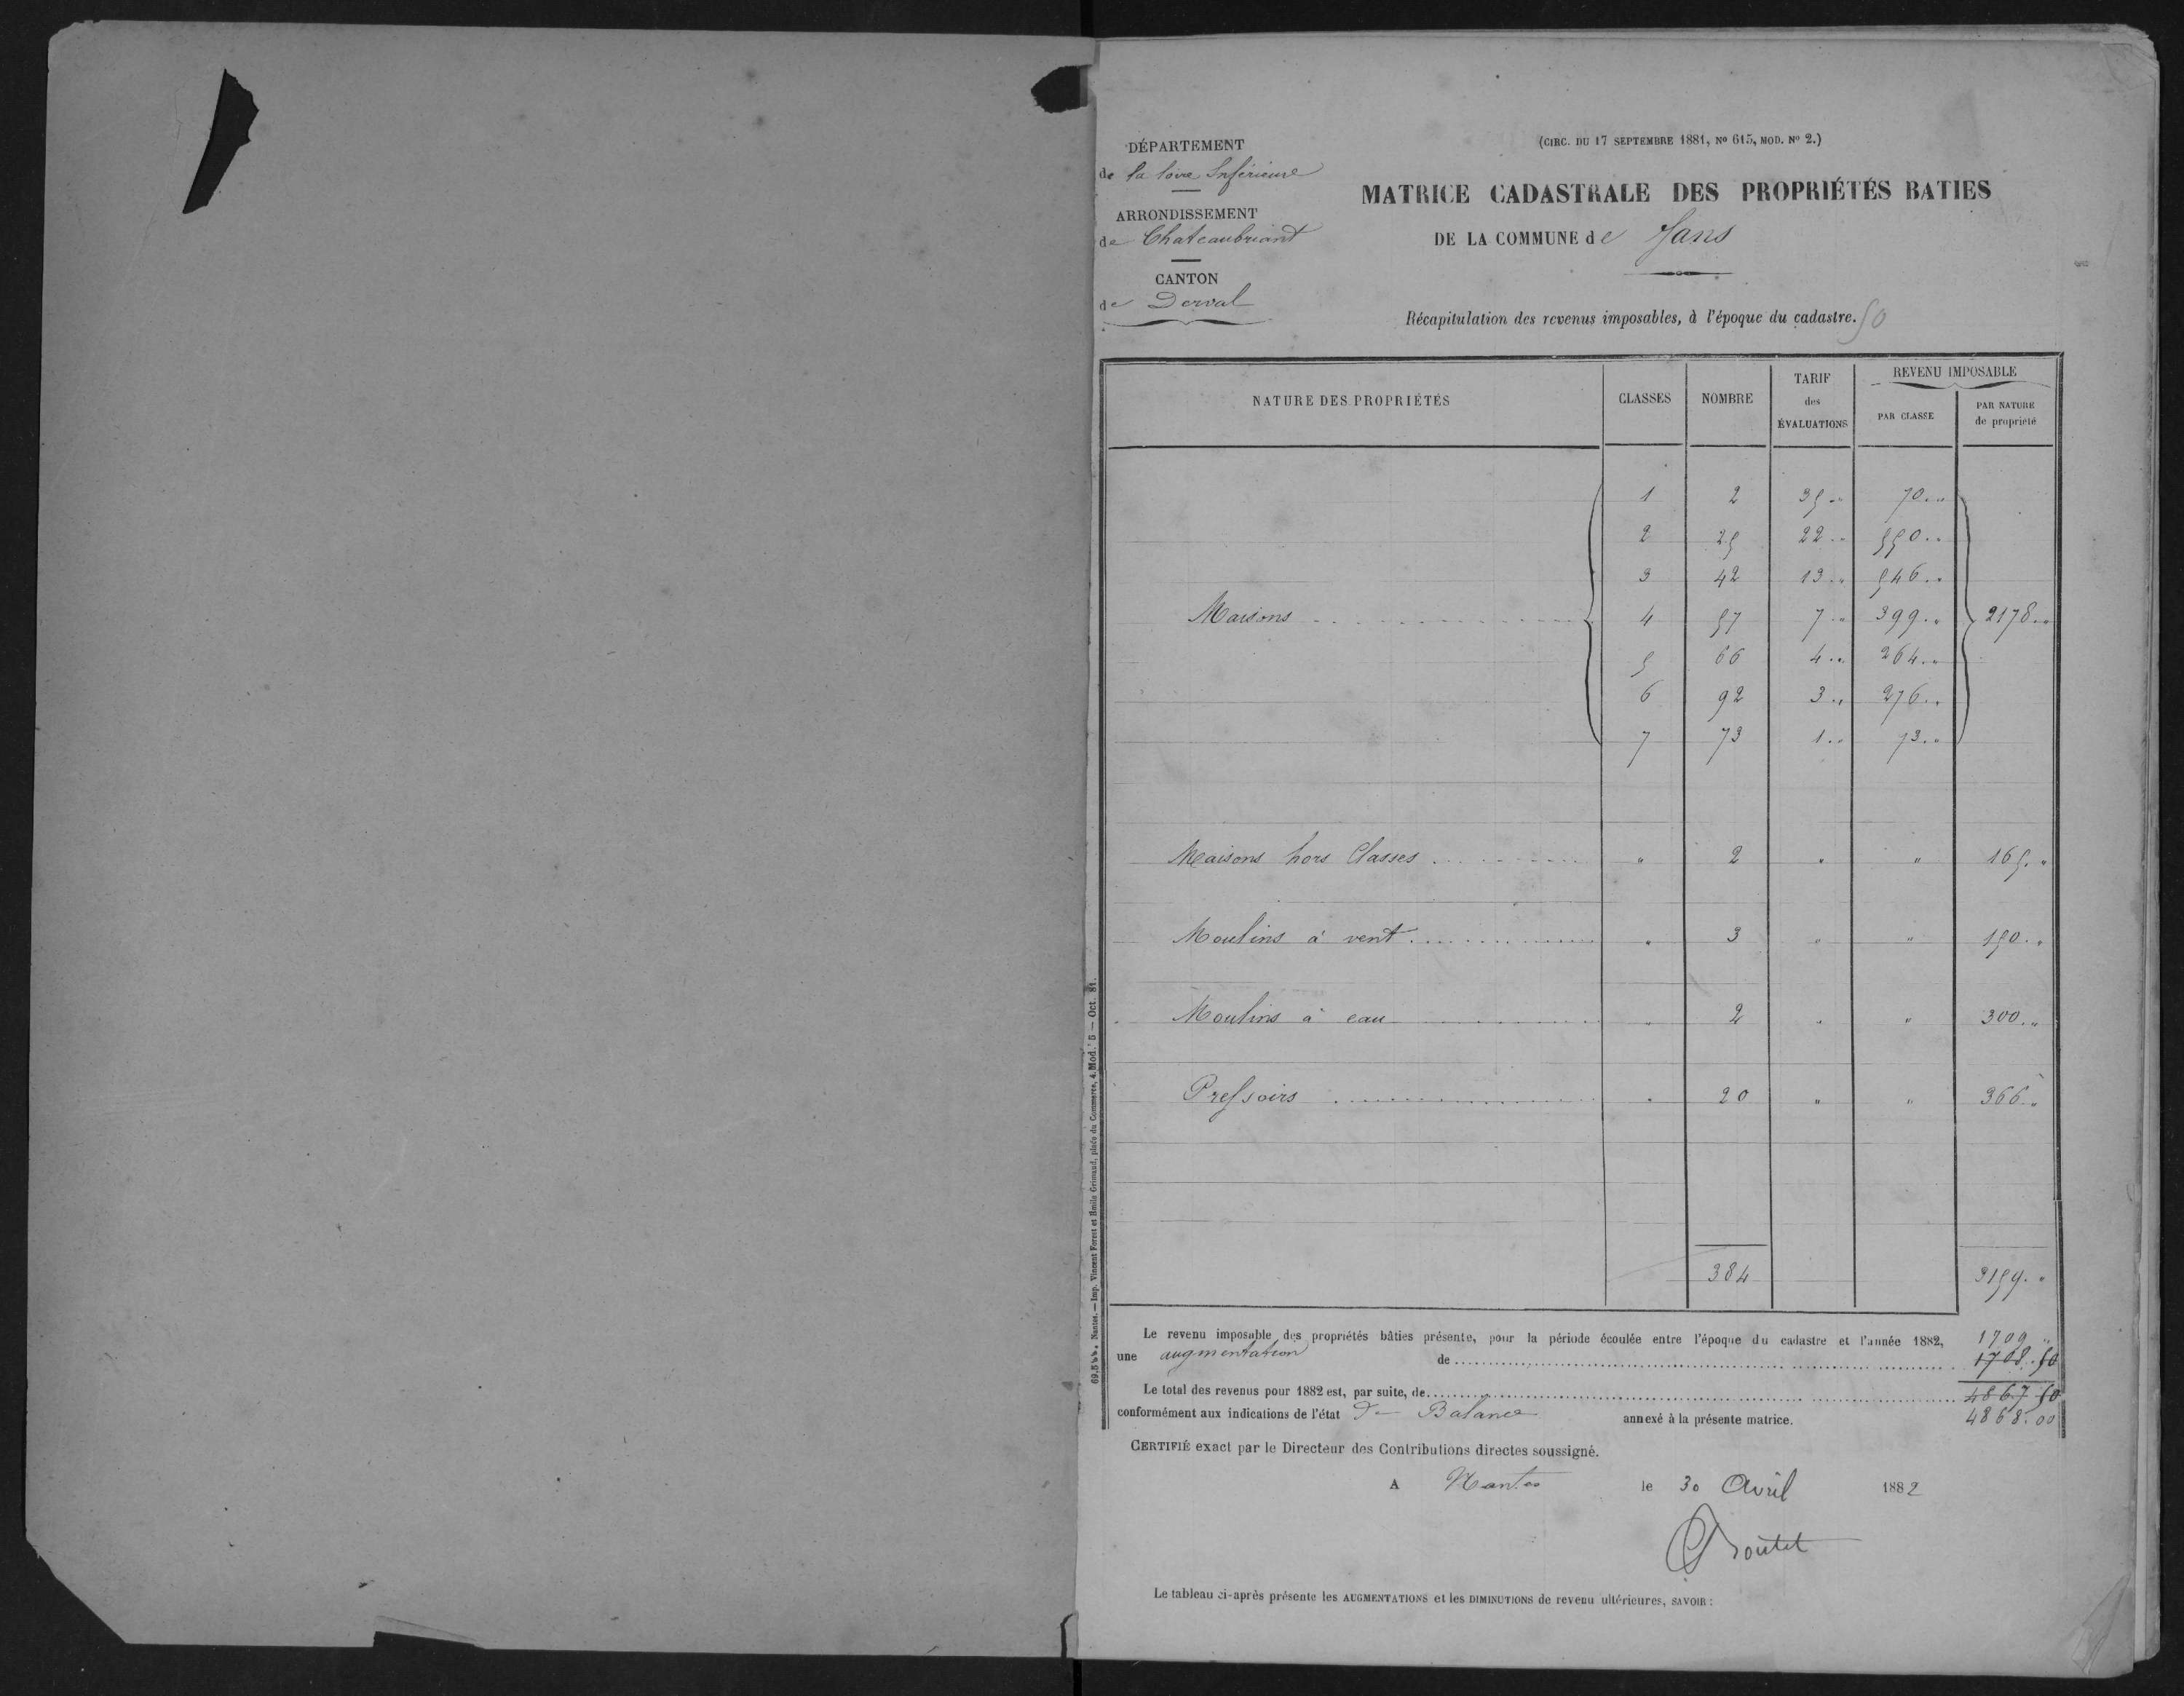 DÉPARTEMENT
de la Loire Inférieure
ARRONDISSEMENT
de Chateaubriant
CANTON
de Derval
(CIRC. DU 17 SEPTEMBRE 1881, No 615, MOD. No 2.)
MATRICE CADASTRALE DES PROPRIÉTÉS BATIES
DE LA COMMUNE de Jans
Récapitulation des revenus imposables, à l'époque du cadastre. 50
NATURE DES PROPRIÉTÉS CLASSES NOMBRE TARIF des ÉVALUATIONS REVENU IMPOSABLE PAR CLASSE PAR NATURE de propriété
1 2 35 " 70 "
2 25 22 " 550 "
3 42 13 " 546 "
Maisons 4 57 7 " 399 " 2178 "
5 66 4 " 264 "
6 92 3 " 276 "
7 73 1 " 73 "
Maisons hors Classes " 2 " " 165 "
Moulins à vent " 3 " " 150 "
Moulins à eau " 2 " " 300 "
Pressoirs " 20 " " 366 "
384 3159 "
Le revenu imposable des propriétés bâties présente, pour la période écoulée entre l'époque du cadastre et l'année 1882, 1709 "
une augmentation de 1708.50
Le total des revenus pour 1882 est, par suite, de 4867.50
conformément aux indications de l'état de Balance annexé à la présente matrice. 4868.00
CERTIFIÉ exact par le Directeur des Contributions directes soussigné.
A Nantes le 30 Avril 1882
Le tableau ci-après présente les AUGMENTATIONS et les DIMINUTIONS de revenu ultérieures, SAVOIR :
69.5 Nantes. — Imp. Vincent Forest et Émile Grimaud, place du Commerce, 4. Mod. 5 — Oct. 81.